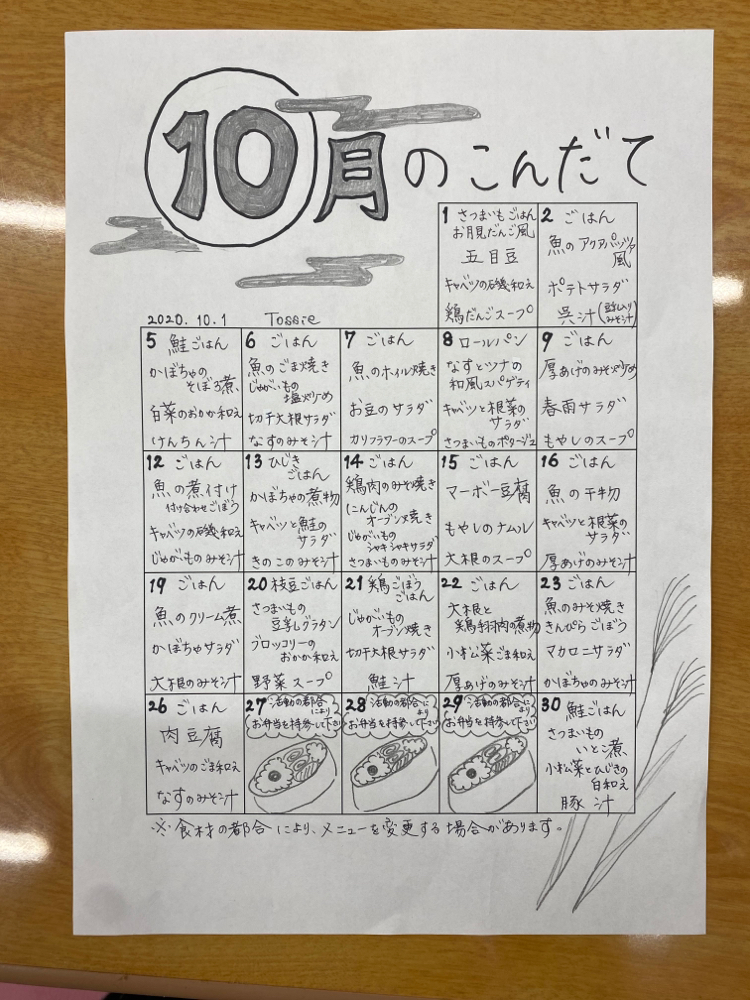 10月のこんだて
2020.10.1 Tossie
1 さつまいもごはん
お月見だんご風
五目豆
キャベツの磯和え
鶏だんごスープ
2 ごはん
魚のアクアパッツァ
風
ポテトサラダ
呉汁(豆入りみそ汁)
5 鮭ごはん
かぼちゃの
そぼろ煮
白菜のおかか和え
けんちん汁
6 ごはん
魚のごま焼き
じゃがいもの
塩炒め
切干大根サラダ
なすのみそ汁
7 ごはん
魚のホイル焼き
お豆のサラダ
カリフラワーのスープ
8 ロールパン
なすとツナの
和風スパゲティ
キャベツと根菜の
サラダ
さつまいものポタージュ
9 ごはん
厚あげのみそ炒め
春雨サラダ
もやしのスープ
12 ごはん
魚の煮付け
付け合わせごぼう
キャベツの磯和え
じゃがいものみそ汁
13 ひじき
ごはん
かぼちゃの煮物
キャベツと鮭の
サラダ
きのこのみそ汁
14 ごはん
鶏肉のみそ焼き
にんじんの
オーブン焼き
じゃがいもの
シャキシャキサラダ
さつまいものみそ汁
15 ごはん
マーボー豆腐
もやしのナムル
大根のスープ
16 ごはん
魚の干物
キャベツと根菜の
サラダ
厚あげのみそ汁
19 ごはん
魚のクリーム煮
かぼちゃサラダ
大根のみそ汁
20 枝豆ごはん
さつまいもの
豆乳グラタン
ブロッコリーの
おかか和え
野菜スープ
21 鶏ごぼう
ごはん
じゃがいもの
オーブン焼き
切干大根サラダ
鮭汁
22 ごはん
大根と
鶏手羽肉の煮物
小松菜ごま和え
厚あげのみそ汁
23 ごはん
魚のみそ焼き
きんぴらごぼう
マカロニサラダ
かぼちゃのみそ汁
26 ごはん
肉豆腐
キャベツのごま和え
なすのみそ汁
27 活動の都合
により
お弁当を持参して下さい
28 活動の都合
により
お弁当を持参して下さい
29 活動の都合
により
お弁当を持参して下さい
30 鮭ごはん
さつまいもの
いとこ煮
小松菜とひじきの
白和え
豚汁
※食材の都合により、メニューを変更する場合があります。